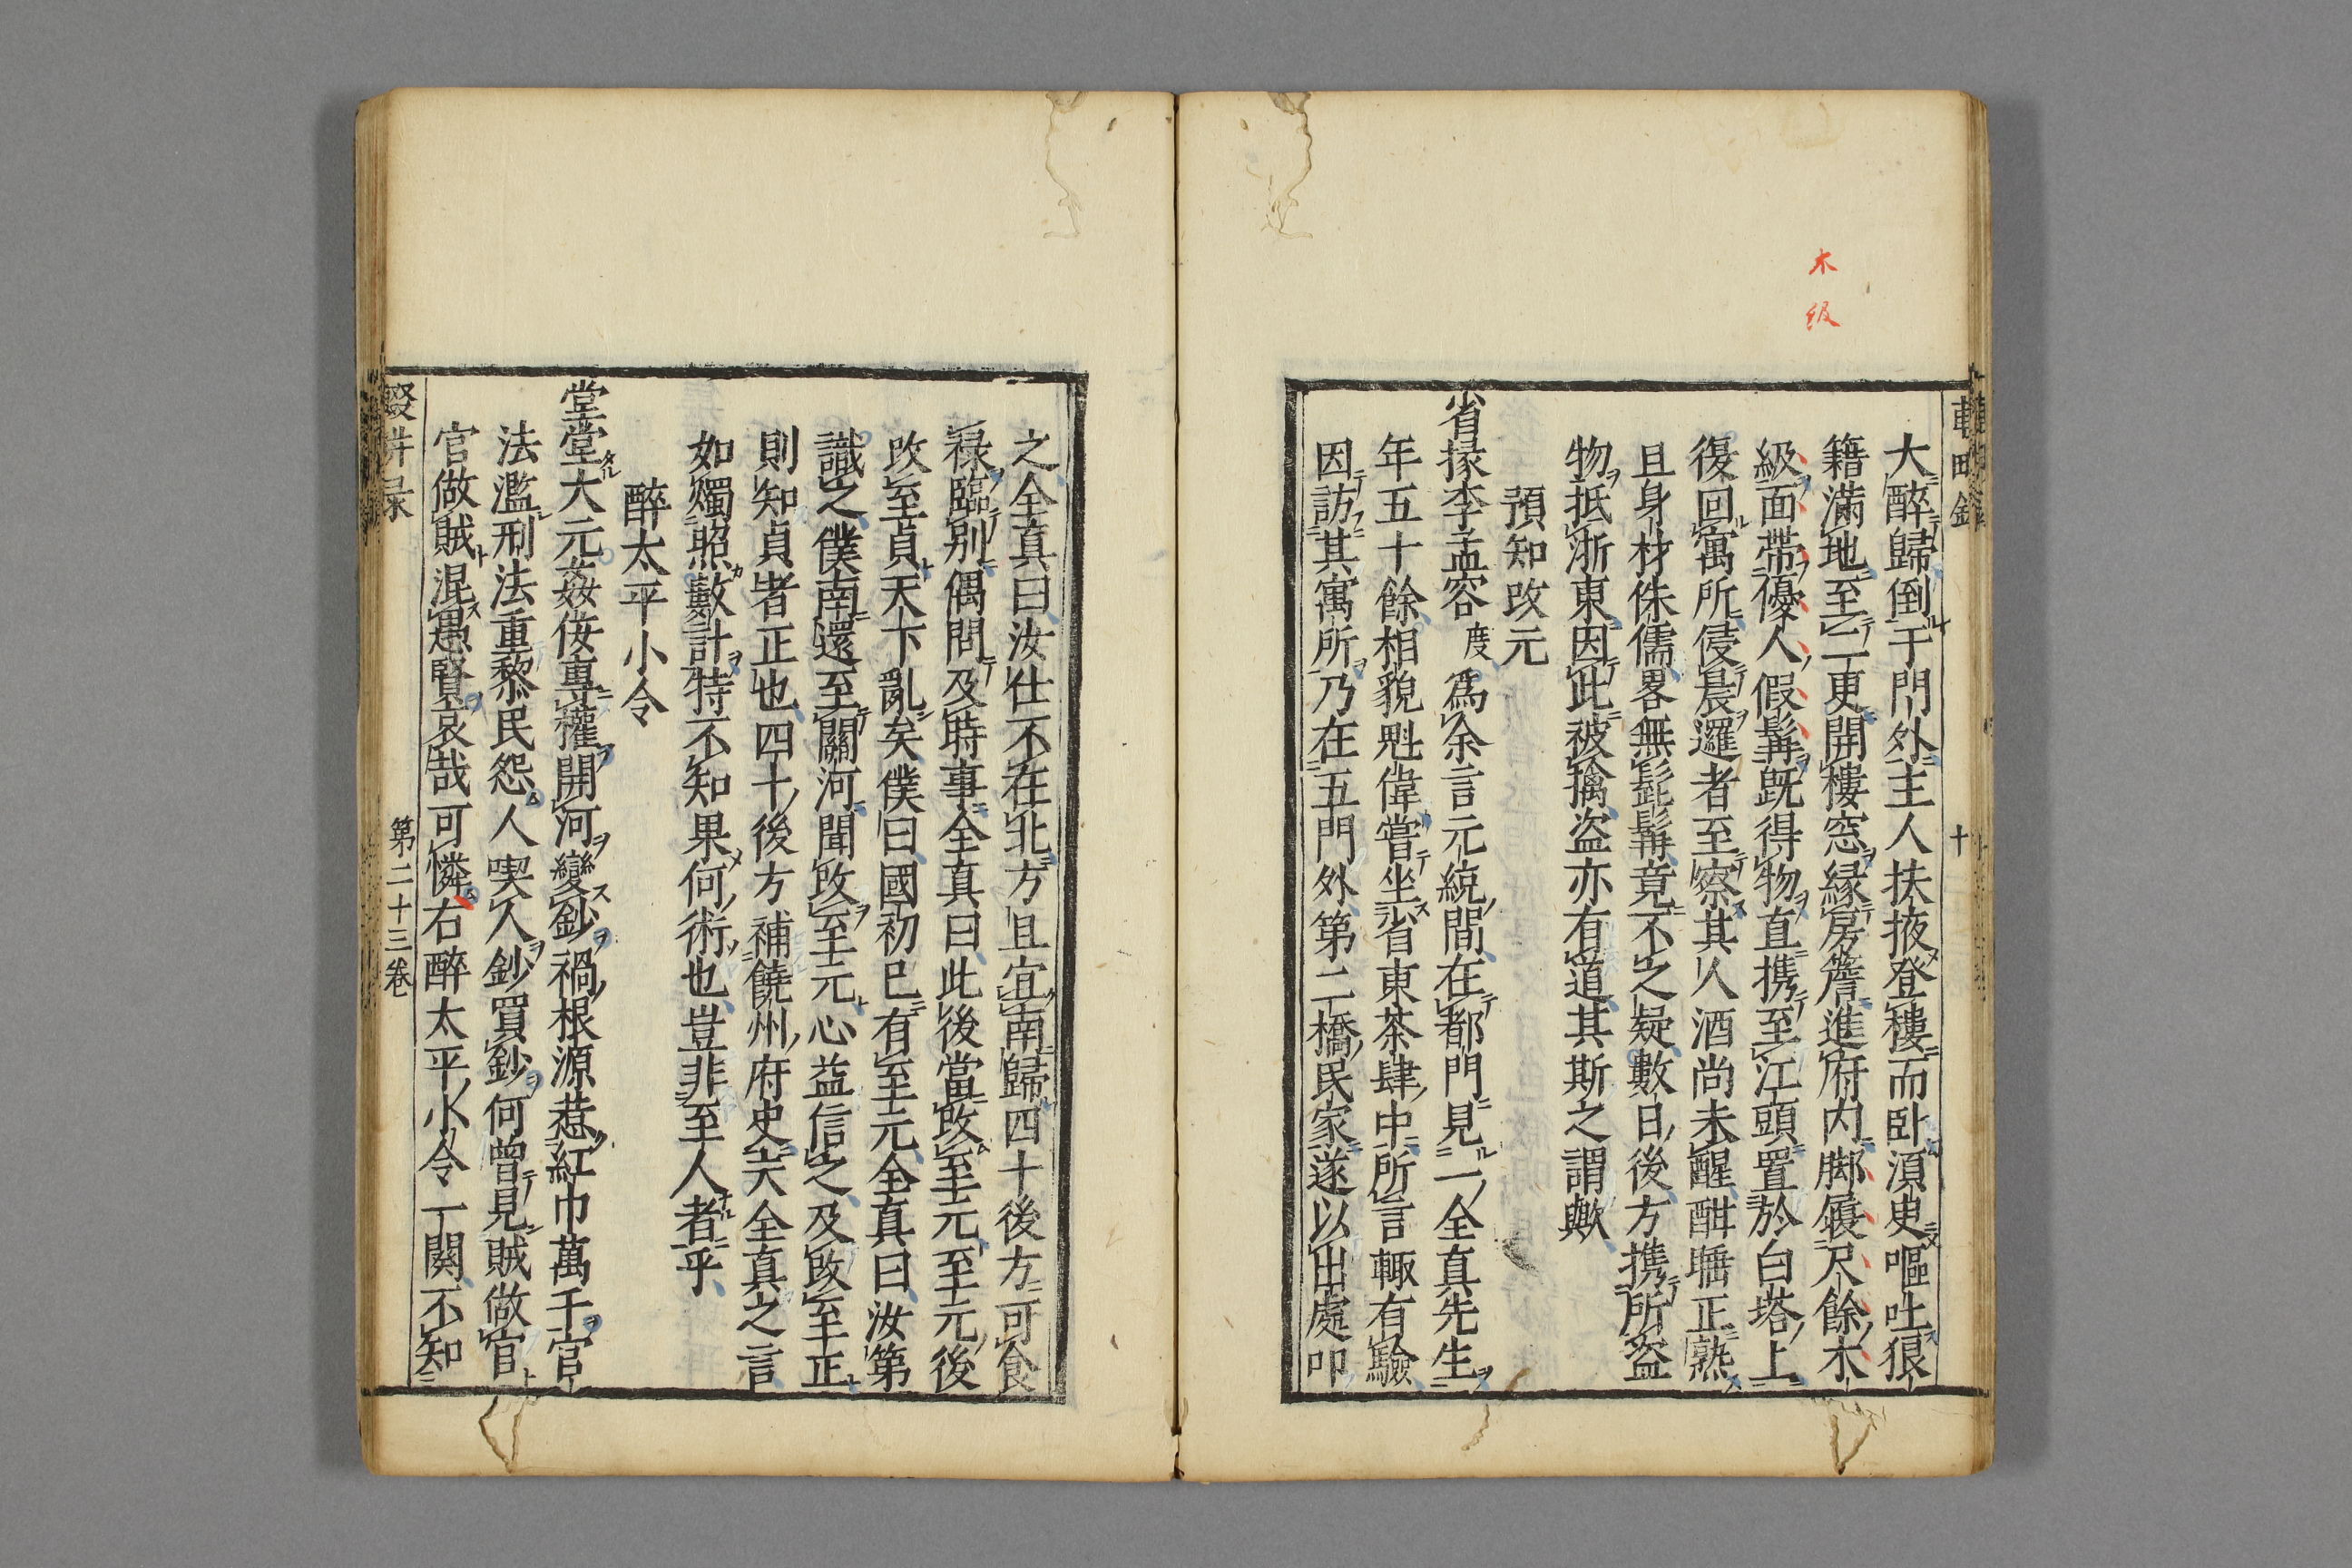 木
級
大醉歸倒于門外主人扶掖登樓而卧湏臾嘔吐狼
籍滿地至二更開樓窓縁房簷進府内脚履尺餘木
級面帶優人假髯旣得物直携至江頭置於白塔上
復回寓所侵晨邏者至察其人酒尚未醒酣睡正熟
且身材侏儒畧無髭髯竟不之疑數日後方携所盗
物抵浙東因此被擒盗亦有道其斯之謂歟
預知改元
省掾李孟容度爲余言元統間在都門見一全真先生
年五十餘相貌魁偉嘗坐省東茶肆中所言輙有驗
因訪其寓所乃在五門外第二橋民家遂以出處叩
之全真曰汝仕不在北方且宜南歸四十後方可食
禄臨別偶問及時事全真曰此後當改至元至元後
改至貞天下亂矣僕曰國初已有至元全真曰汝第
識之僕南還至關河聞改至元心益信之及改至正
則知貞者正也四十後方補饒州府史夫全真之言
如燭照數計特不知果何術也豈非至人者乎
醉太平小令
堂堂大元姦佞專權開河變鈔禍根源惹紅巾萬千官
法濫刑法重黎民怨人喫人鈔買鈔何曾見賊做官
官做賊混愚賢哀哉可憐右醉太平小令一闋不知
第二十三卷
十